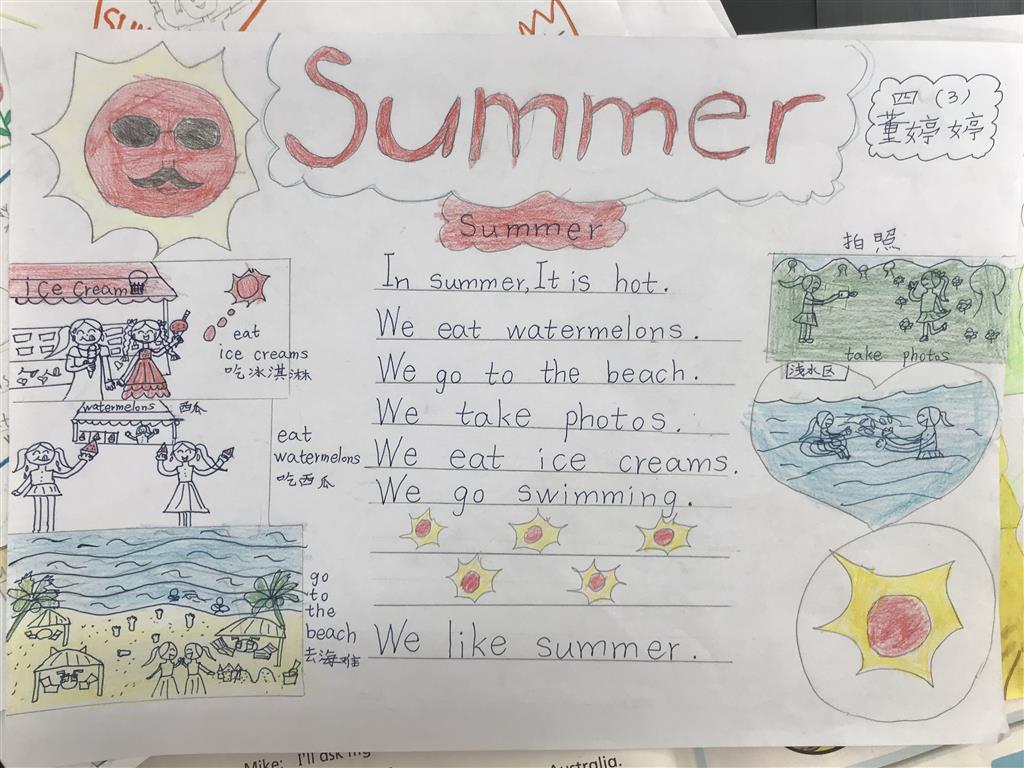 Summer
四（3）
董婷婷
Summer
In summer,It is hot.
We eat watermelons.
We go to the beach.
We take photos.
We eat ice creams.
We go swimming.
We like summer.
Ice Cream
eat
ice creams
吃冰淇淋
watermelons 西瓜
eat
watermelons
吃西瓜
go
to
the
beach
去海难
拍照
take photos
浅水区
Mike: I'll ask
Australia.